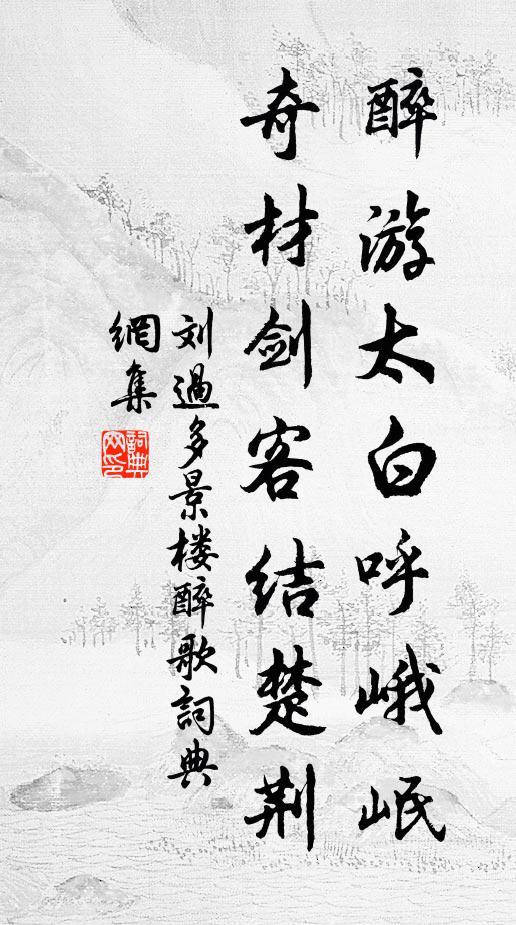 醉游太白呼峨岷
奇材劍客结楚荆
刘過多景楼醉歌詞典
網集
詞典网印